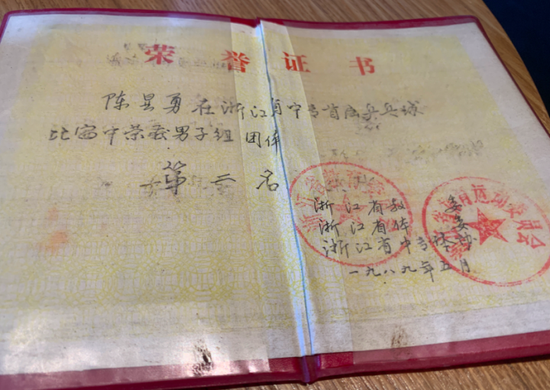 荣誉证书
陈昱勇在浙江省中专首届乒乓球
比赛中荣获男子组团体
第二名
浙江省教委
浙江省体委
浙江省中专体协
一九八九年五月